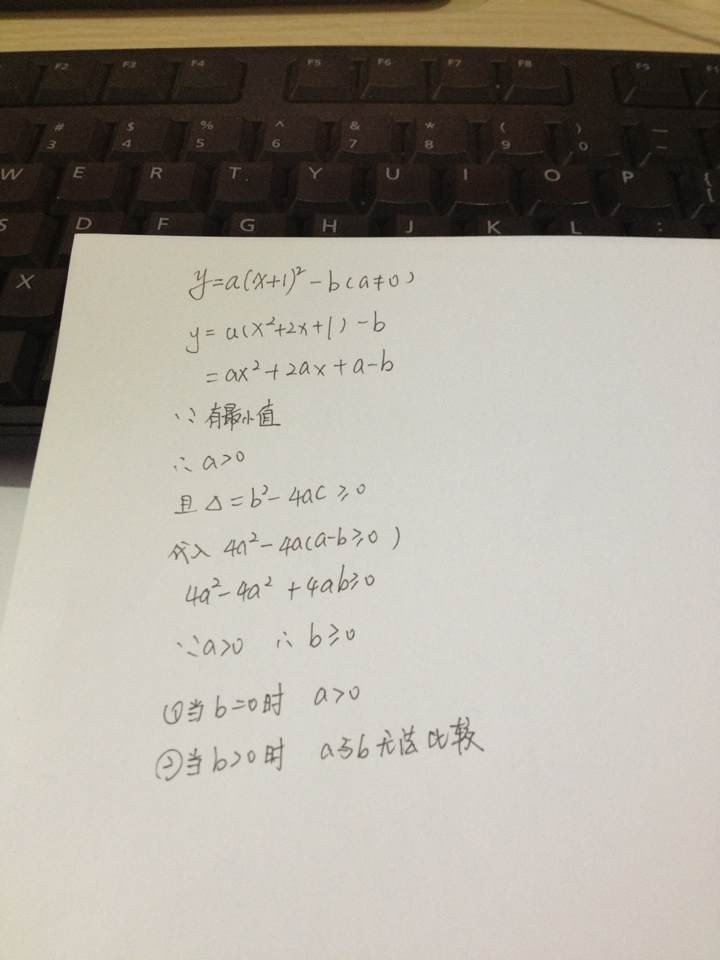 F2 F3 F4 F5 F6 F7 F8 F9
# 3 $ 4 % 5 ^ 6 & 7 * 8 ( 9 ) 0
W E R T Y U I O P { [
S D F G H J K L :
X
y=a(x+1)²-b(a≠0)
y=a(x²+2x+1)-b
=ax²+2ax+a-b
∵有最小值
∴a>0
且△=b²-4ac≥0
代入 4a²-4a(a-b≥0)
4a²-4a²+4ab≥0
∵a>0 ∴b≥0
①当b=0时 a>0
②当b>0时 a与b无法比较